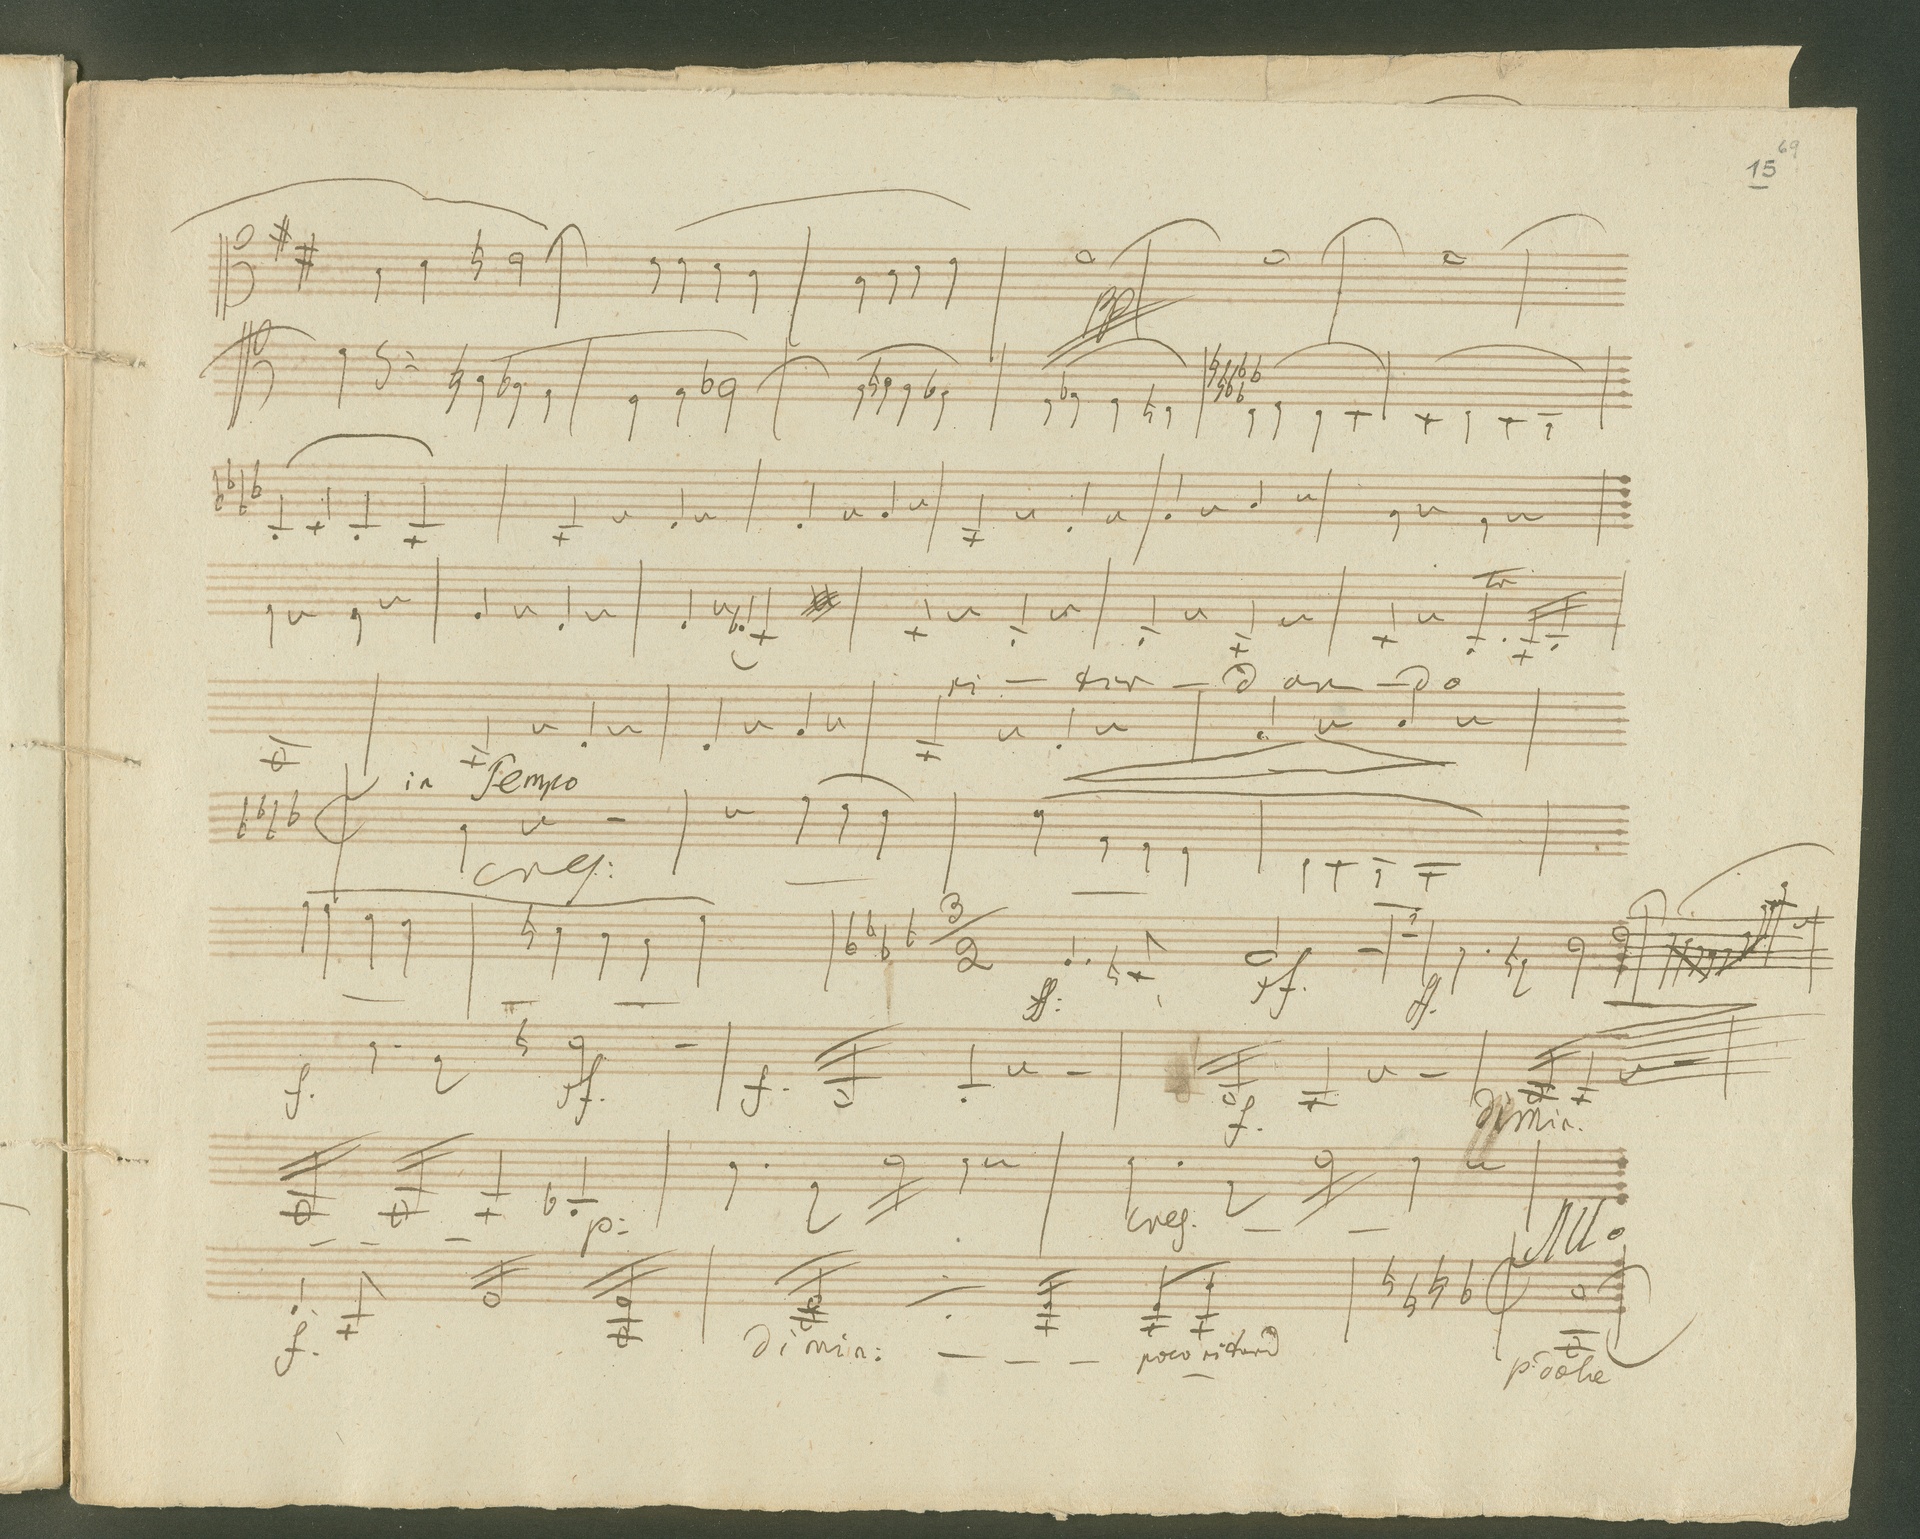 69
15
pp
ri – tar – dan – do
in Tempo
cresc:
3
2
ff: sf. ff.
f. sf. f. f. dimin.
p: cresc. – –
All.
f. dimin: – – – poco ritard
p dolce